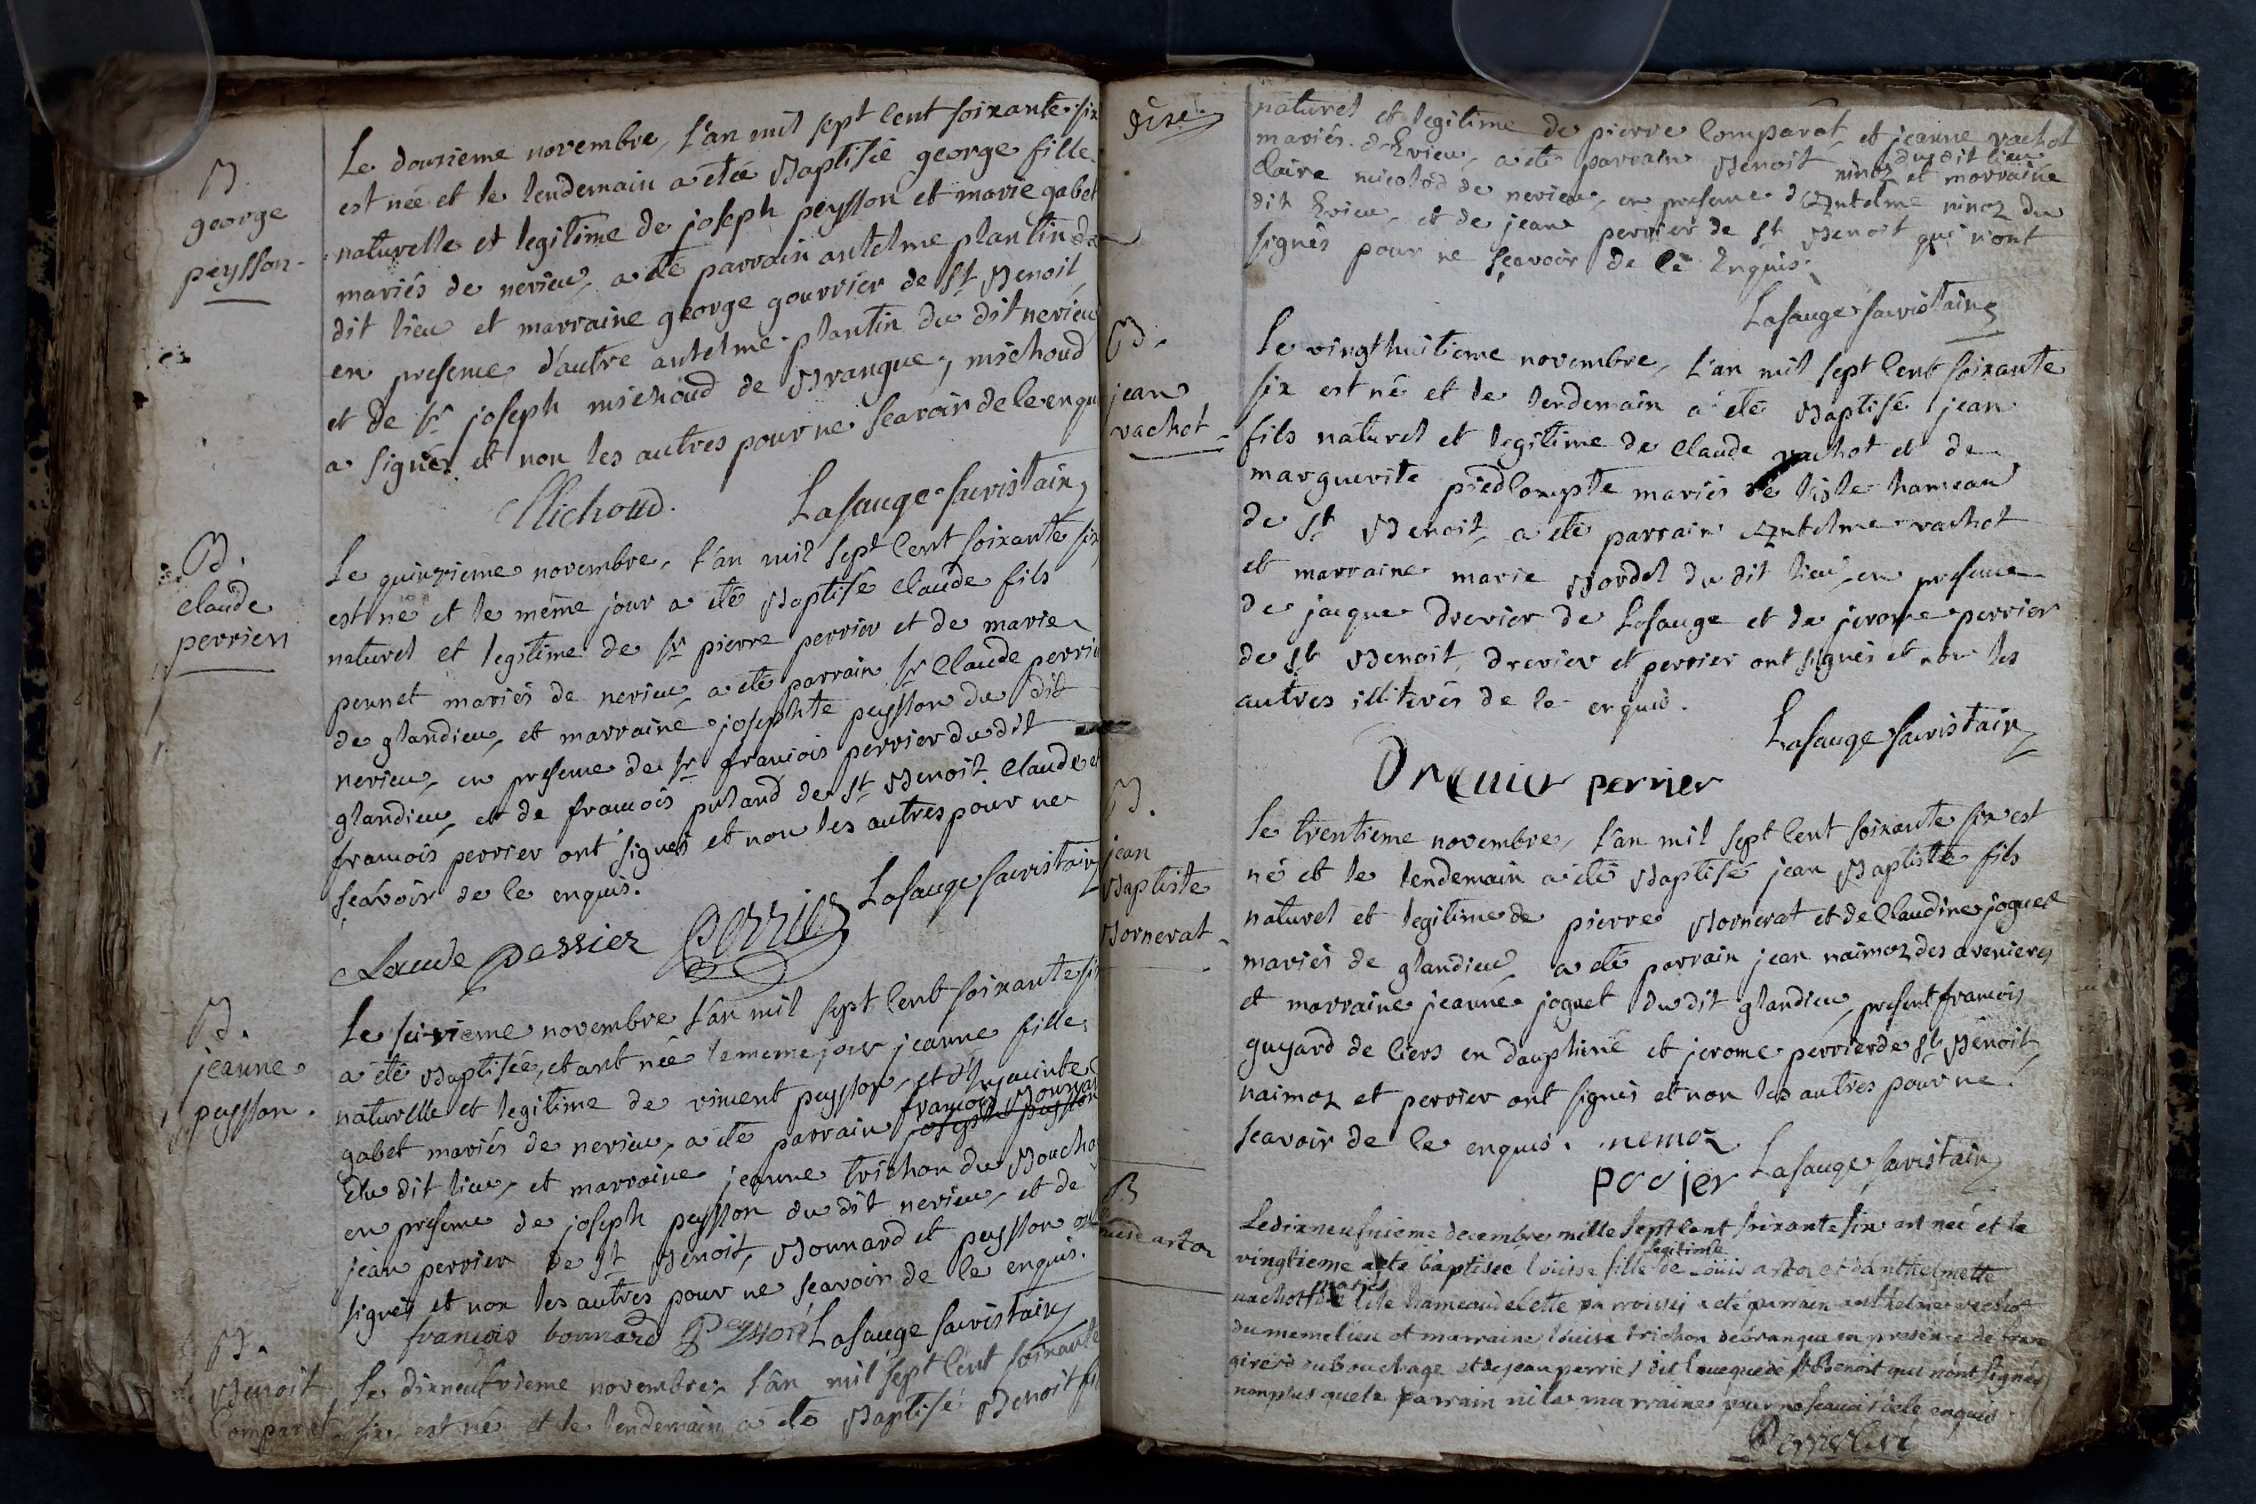 B
george
peysson
Le douzieme novembre, l'an mil sept cent soixante six
est née et le lendemain a été Baptisée george fille
naturelle et legitime de joseph peysson et marie gabet
mariés de nerieu, a été parrain antelme plantin du
dit lieu et marraine george gourrier de St Benoit,
en presence d'autre antelme plantin du dit nerieu
et de Sr joseph michoud de Brangue, michoud
a signé et non les autres pour ne scavoir de ce enqui
Michoud. Lasauge sacristain
B.
claude
perrier
Le quinzieme novembre, l'an mil sept cent soixante six
est né et le même jour a été Baptisé Claude fils
naturel et legitime de Sr pierre perrier et de marie
pennet mariés de nerieu, a été parrain Sr Claude perrier
de glandieu, et marraine josephte peysson du dit
nerieu, en presence de Sr francois perrier du dit
glandieu, et de francois puland de St Benoit Claude et
francois perrier ont signés et non les autres pour ne
scavoir de ce enquis.
Claude Perrier Perrier Lasauge sacristain
B.
jeanne
peysson.
Le seizieme novembre l'an mil sept cent soixante six
a été Baptisée, etant née le meme jour jeanne fille
naturelle et legitime de vincent peysson, et d'hyacinte
gabet mariés de nerieu, a été parrain francois Bonnard
joseph peysson
du dit lieu, et marraine jeanne trichon du Boucha
en presence de joseph peysson du dit nerieu, et de
jean perrier de St Benoit, Bonnard et peysson ont
signés et non les autres pour ne scavoir de ce enquis.
francois bonnard Peysson Lasauge sacristain
B.
Benoit
Comparat
Le dixneufvieme novembre, l'an mil sept cent soixante
six, est né et le lendemain a été Baptisé Benoit fi
naturel et legitime de pierre Comparat, et jeanne vachot
mariés d'Evieu, a été parrain Benoit ninoz du dit lieu et marraine
Claire micolod de nerieu, en presence d'Antelme ninoz du
dit Evieu, et de jean perrier de St Benoit qui n'ont
signés pour ne scavoir de ce Enquis.
Lasauge sacristain
B.
jean
vachot
Le vingthuitieme novembre, l'an mil sept cent soixante
six est né et le lendemain a été Baptisé jean
fils naturel et legitime de Claude vachot et de
marguerite piedCompte mariés de liste hameau
de St Benoit, a été parrain Antelme vachot
et marraine marie Bordel du dit lieu, en presence
de jacque Drevier de Lasauge et de jerome perrier
de St Benoit, Drevier et perrier ont signés et non les
autres illiterés de ce enquis.
Lasauge sacristain
Drevier perrier
B.
jean
Baptiste
Bornerat
Le trentieme novembre, l'an mil sept cent soixante six est
né et le lendemain a été Baptisé jean Baptiste fils
naturel et legitime de pierre Bornerat et de Claudine joguet
mariés de glandieu, a été parrain jean naimoz des avenieres
et marraine jeanne joguet du dit glandieu, present francois
guyard de Ciers en dauphiné et jerome perrier de St Benoit,
naimoz et perrier ont signés et non les autres pour ne
scavoir de ce enquis. nemoz
Lasauge sacristain
B
Le dixneufvieme decembre mille sept cent soixante six est neé et le
vingtieme a eté baptisée louise fille legitime de Louis artoz et d'anthelmette
vachot mariés de liste hameau de cette parroisse a eté parrain anthelme vachot
du meme lieu et marraine louise trichon de brangue en presence de fran
girerd du bouchage et de jean perrier dit de St Benoit qui n'ont signés
non plus que le parrain ni la marraine pour ne scavoir de ce enquis